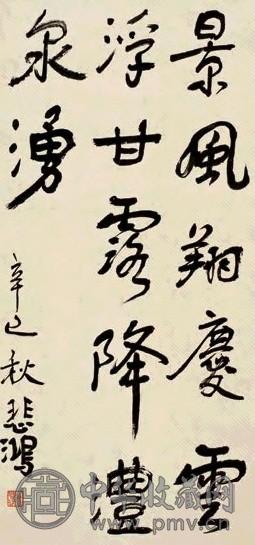 景風翔慶雲
浮甘露降澧
泉湧
辛巳秋悲鴻
中华收藏网
www.pmv.cn